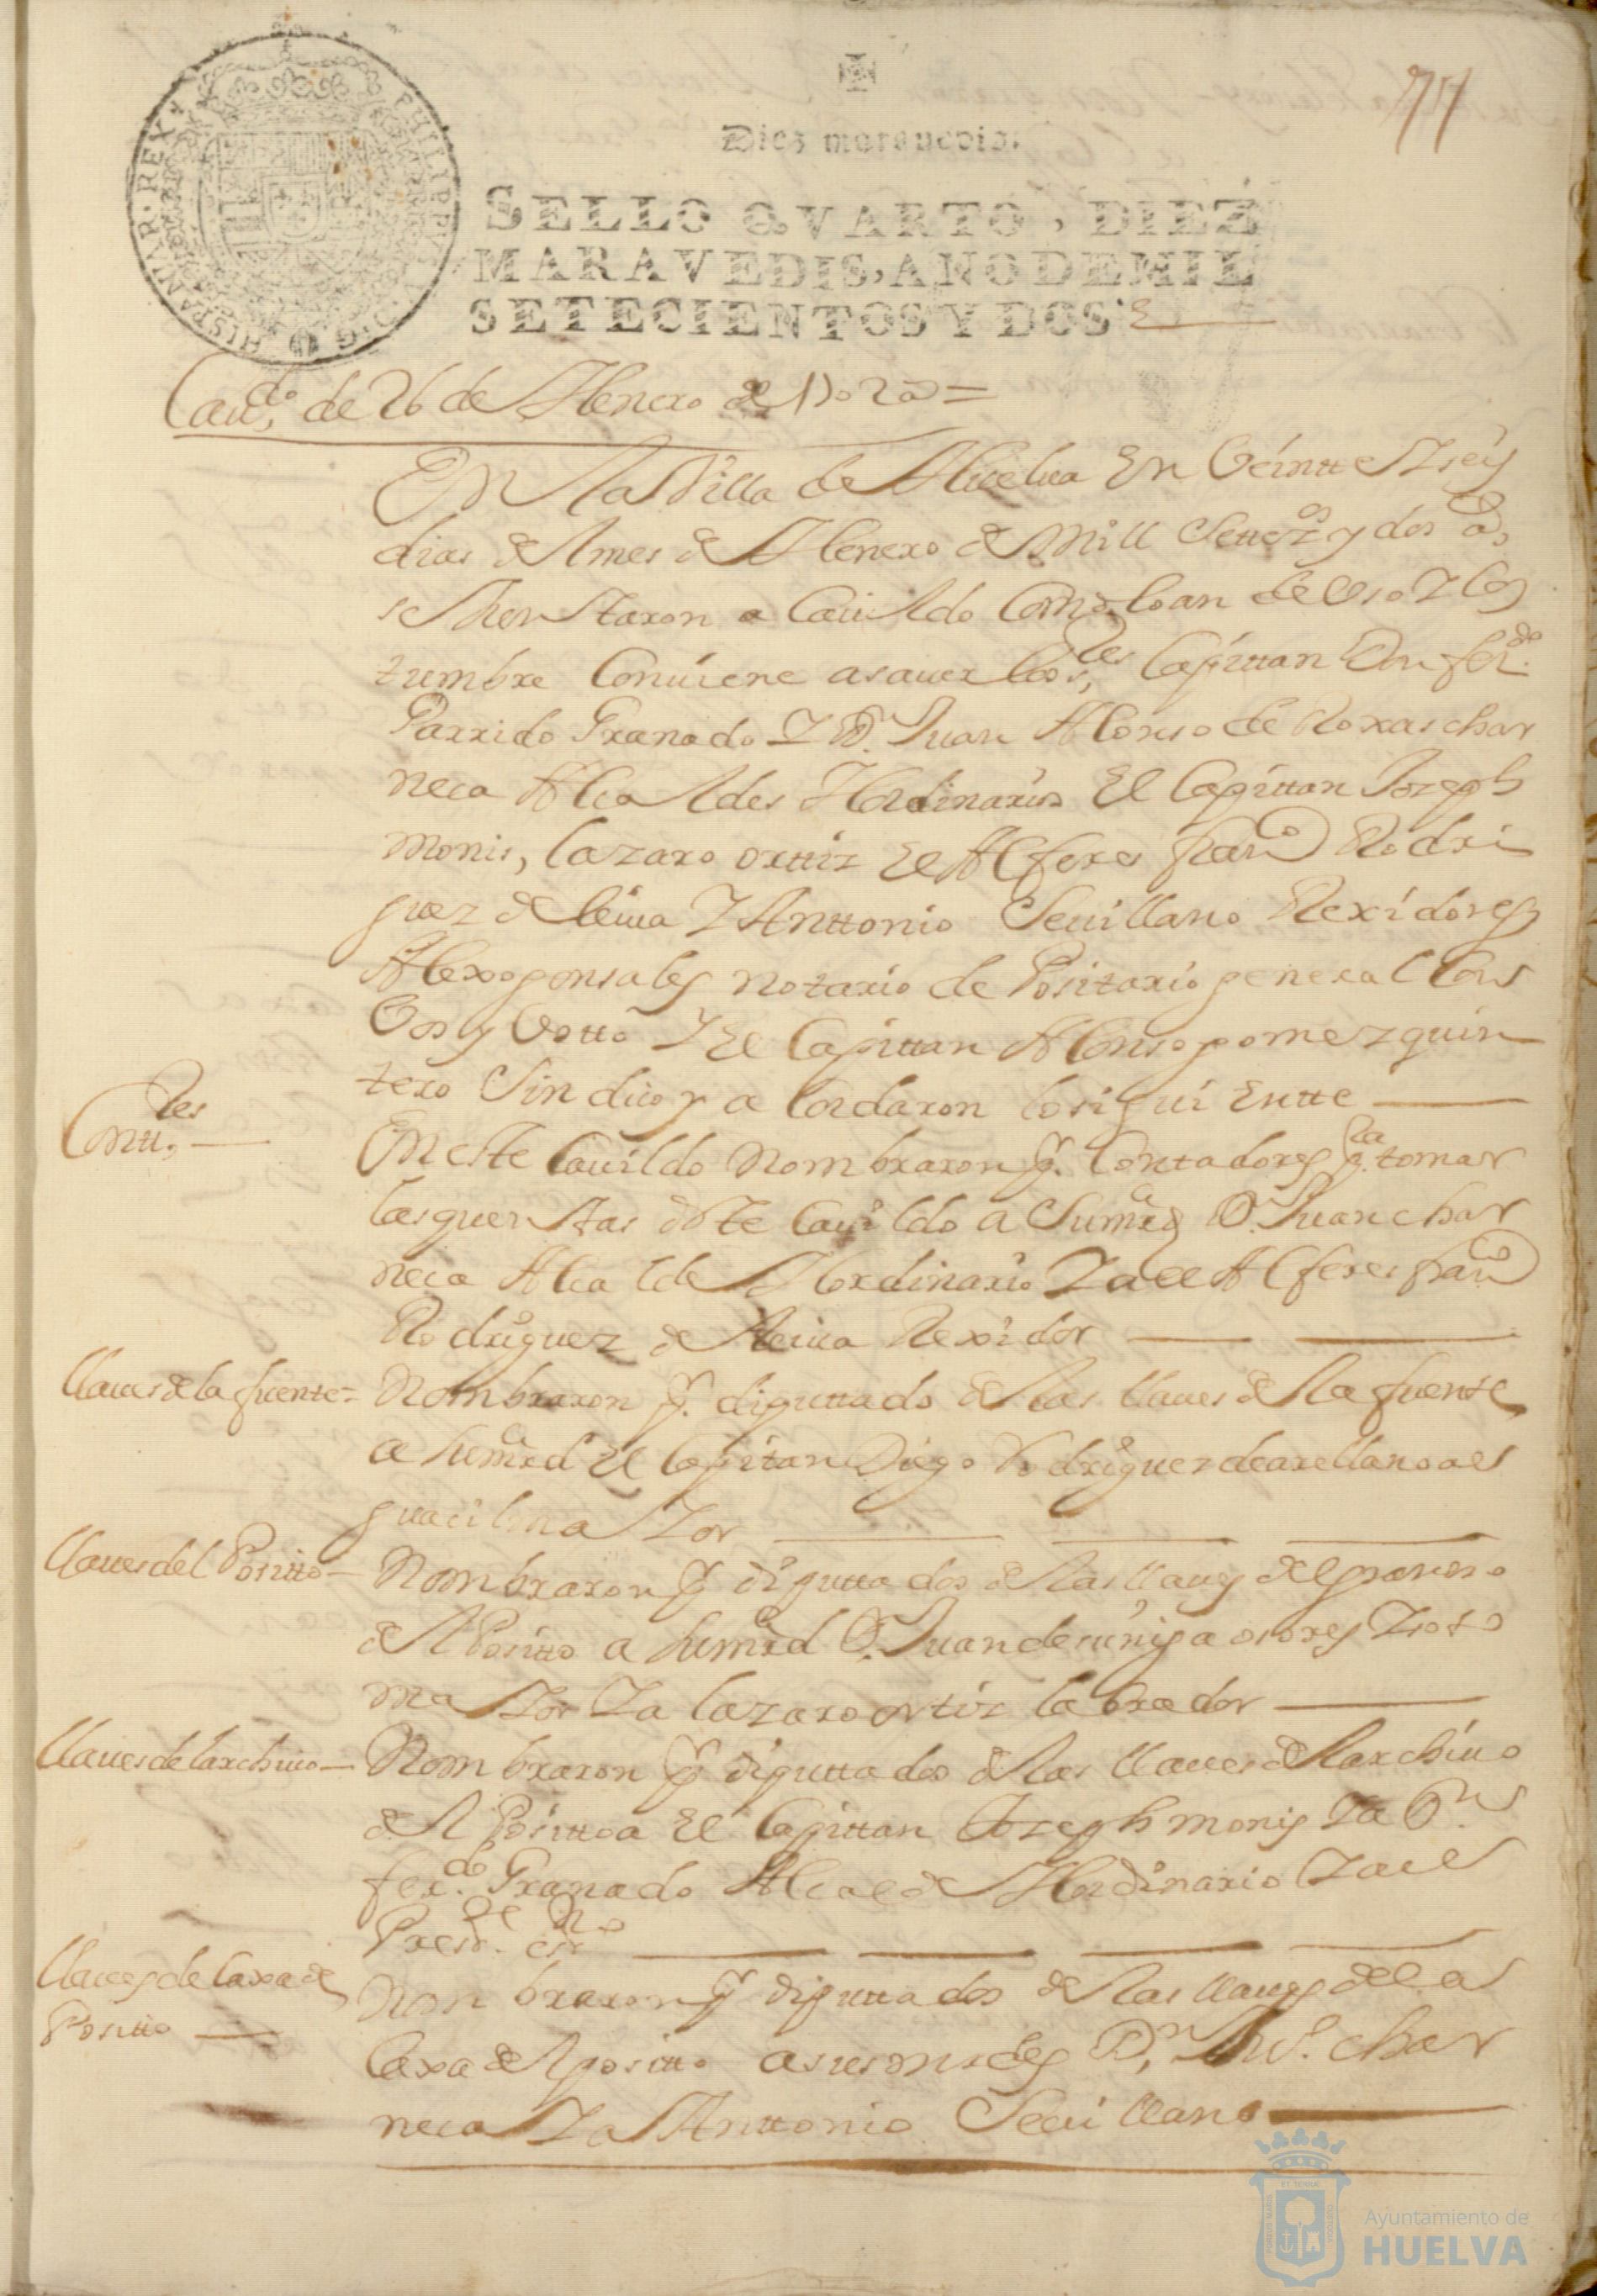 77
Diez maravedis.
SELLO QVARTO, DIEZ
MARAVEDIS, AÑO DE MIL
SETECIENTOS Y DOS.
PHILIPPVS V D G HISPANIAR REX
Caudo. de 26 de Henero de 1702 as =
En la Villa de Huelua en Veintte y seis
dias del mes de Henero de mill Settezos y dos as,
se Juntaron a Cauildo Como lo an de Uso y Cos
tumbre Conuiene a sauer los Sres, Capittan Don ferdo.
Garrido Granado y D. Juan Alonso de Roxas char
neca Alcaldes Hordinarios El Capittan Joseph
monis, lazaro orttiz el Alferes franco Rodri
guez de leiua y Anttonio Seuillano Rexidores
Alexo gonsales notario de Positario general Con
Vos y Votto y El Capittan Alonso gomez quin
tero Sindico y a Cordaron lo siguiEntte
Conttles.
En este Cauildo nombraron p. Contadores pra. tomar
las quentas deste Cauildo a Sumrd D. Juan char
neca Alcalde Hordinario y a el Alferes franco
Rodriguez de leiua Rexidor
llaues de la fuente =
Nombraron p. diputtado de las llaues de la fuente
a sumrd el Capitan Diego Rodriguez de arellano al
guacil maior
llaues del Positto
Nombraron p diputtados de las llaues del granero
del Positto a sumrd D. Juan de suñiga osores
ma ior y a lazaro ortiz labrador
llaues del archiuo
Nombraron p diputtados de las llaues del archiuo
del Positto a el Capittan Joseph monis y a Dn
ferdo. Granado Alcalde Hordinario y a el
Preste. esno
llaues de Caxa de
Positto
Nombraron p diputtados de las llaues de la
Caxa del positto a sus mrdes Dn. Juo. char
neca y a Anttonio Seuillano
Ayuntamiento de
HUELVA